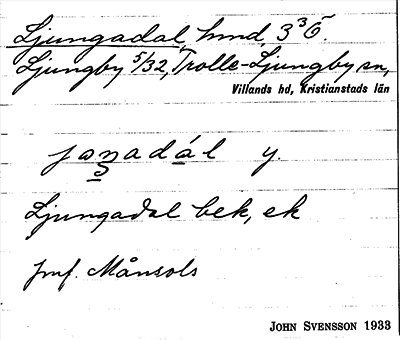 Ljungadal, hmd, 3³Ö.
Ljungby 5/32, Trolle-Ljungby sn,
Villands hd, Kristianstads län
y.
Ljungadal bek, ek
jmf. Månsols
JOHN SVENSSON 1933